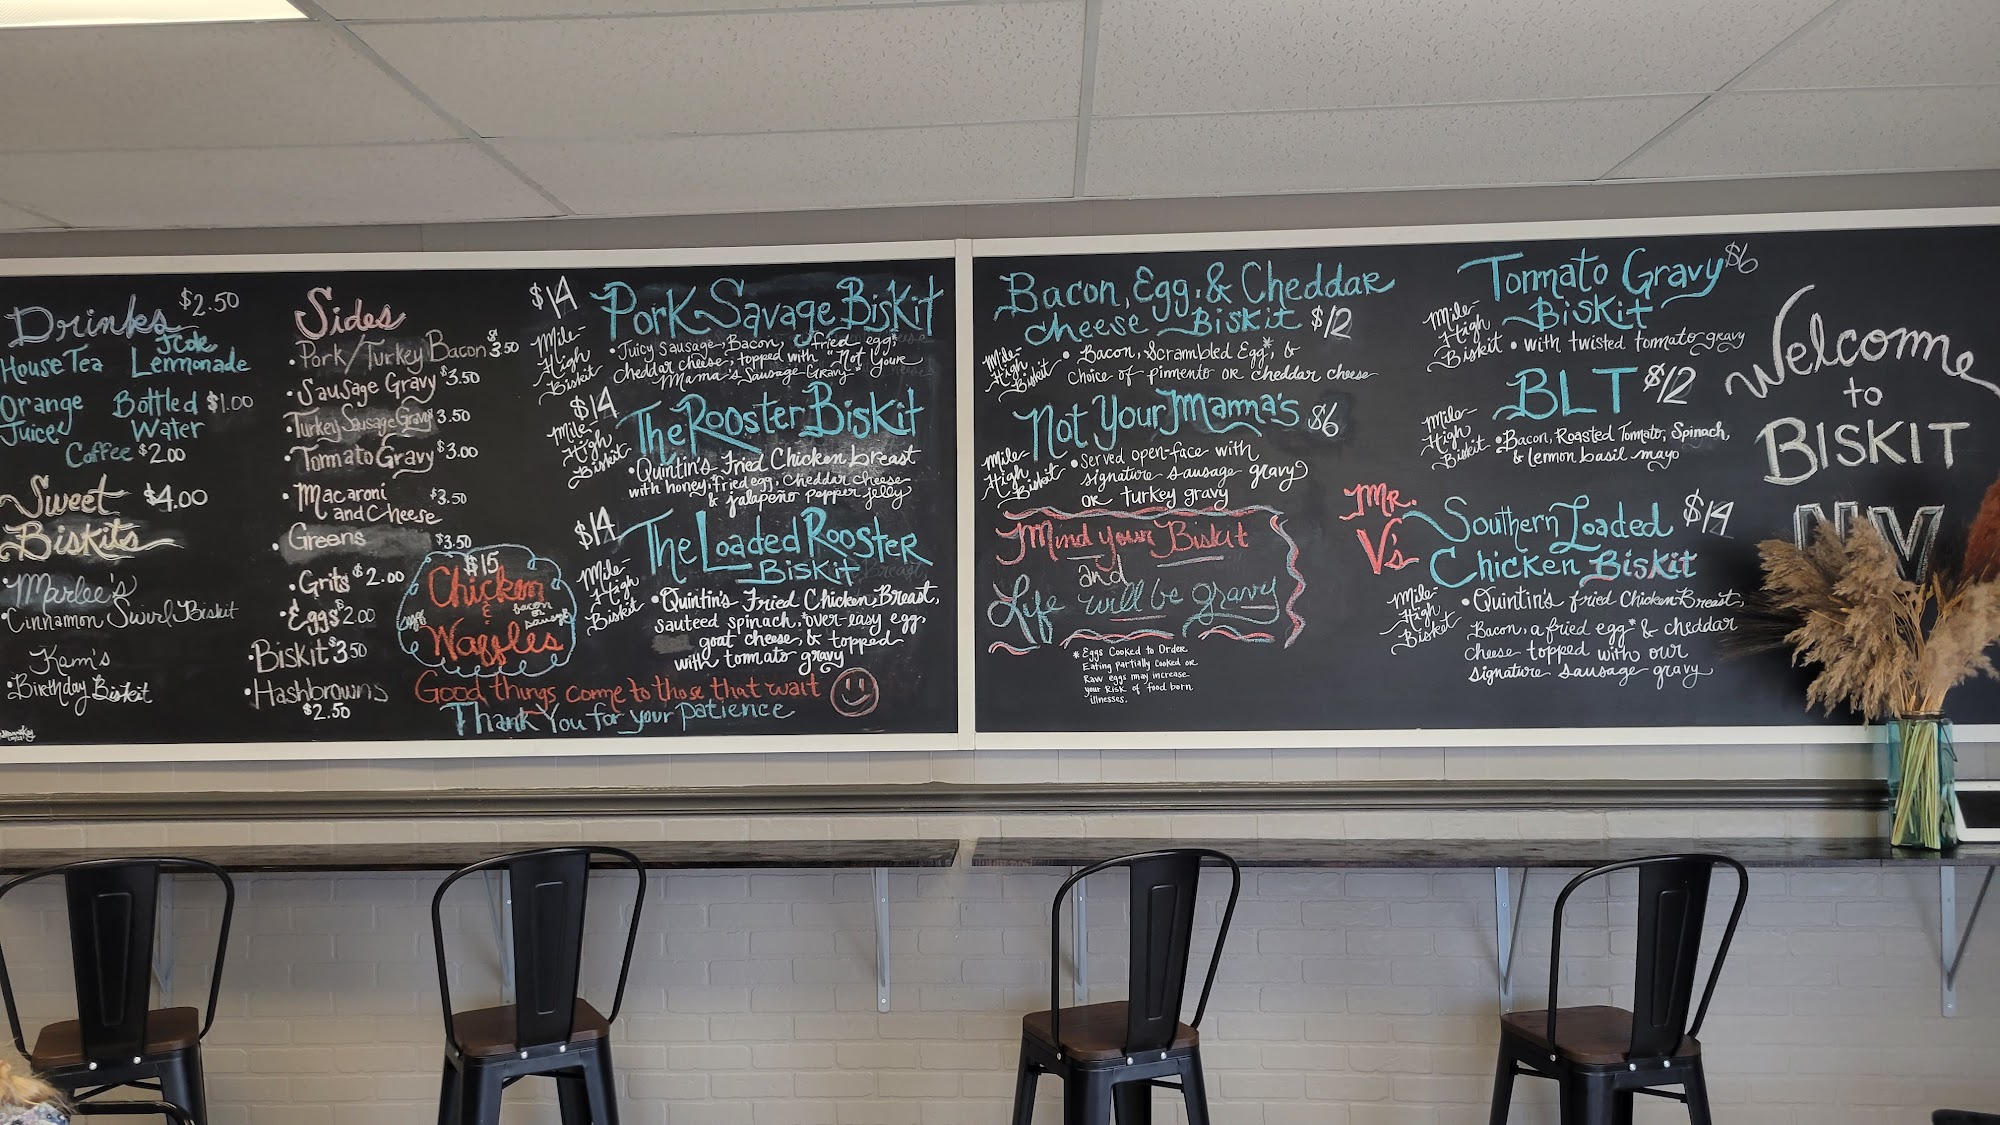 Drinks $2.50
House Tea
Lemonade
Orange Juice
Bottled Water $1.00
Coffee $2.00
Sweet Biskits $4.00
•Marlee's
Cinnamon Swirl Biskit
•Birthday Biskit
Sides
•Pork/Turkey Bacon $3.50
•Sausage Gravy $3.50
Turkey Sausage Gravy 3.50
•Tomato Gravy $3.00
•Macaroni and Cheese $3.50
•Greens $3.50
•Grits $2.00
•Eggs $2.00
•Biskit $3.50
•Hashbrowns $2.50
$15
Chicken & Waffles
bacon or sausage
Good things come to those that wait
Thank You for your patience
$14 Pork Savage Biskit
Mile-High Biskit
•Juicy Sausage, Bacon, a fried egg*
cheddar cheese, topped with "Not Your
Mama's Sausage Gravy"
$14 The Rooster Biskit
Mile-High Biskit
•Quintin's Fried Chicken breast
with honey, fried egg, cheddar cheese
& jalapeño pepper jelly
$14 The Loaded Rooster
Biskit
Mile-High Biskit
•Quintin's Fried Chicken Breast,
sauteed spinach, over-easy egg,
goat cheese, & topped
with tomato gravy
Bacon, Egg, & Cheddar
cheese Biskit $12
Mile-High Biskit
•Bacon, Scrambled Egg*, &
choice of pimento or cheddar cheese
Not Your Mama's $6
Mile-High Biskit
•Served open-face with
signature sausage gravy
or turkey gravy
Mind your Biskit
and
Life will be gravy
*Eggs Cooked to Order
Eating partially cooked or
Raw eggs may increase
your Risk of food born
illnesses.
Tomato Gravy $6
Biskit
Mile-High Biskit
•with twisted tomato gravy
BLT $12
Mile-High Biskit
•Bacon, Roasted Tomato, Spinach,
& lemon basil mayo
Mr. V's
Southern Loaded $14
Chicken Biskit
Mile-High Biskit
•Quintin's fried Chicken Breast,
Bacon, a fried egg* & cheddar
cheese topped with our
signature sausage gravy
Welcome
to
BISKIT